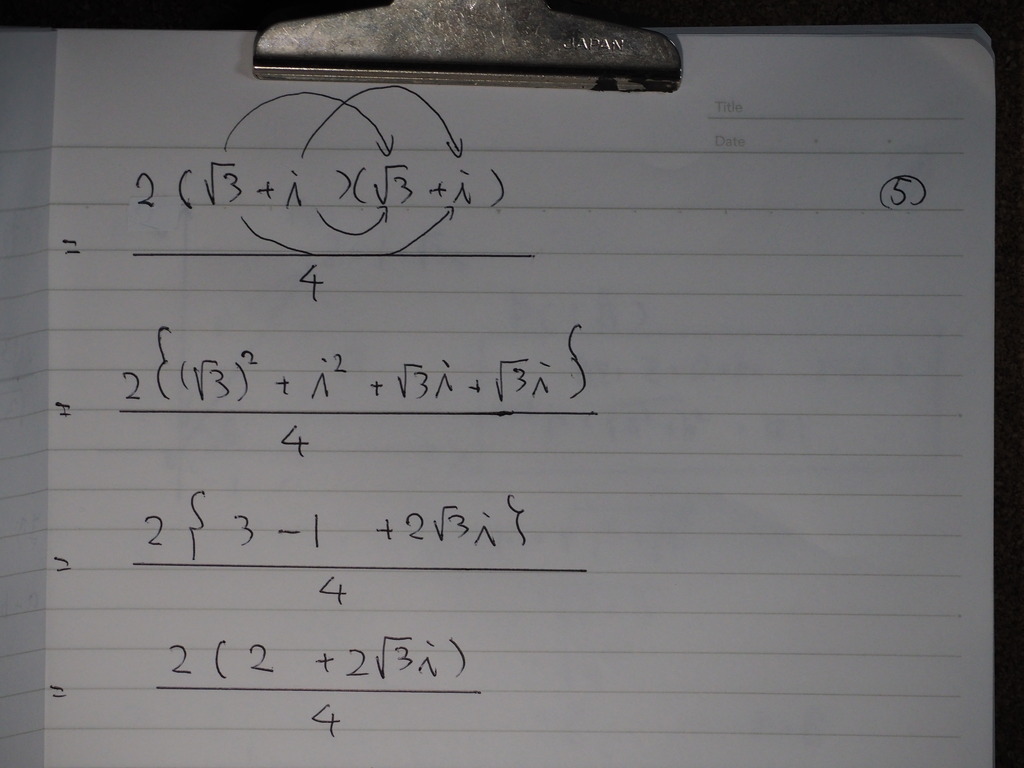 JAPAN
Title
Date
2(√3+i)(√3+i)
⑤
=
4
2{(√3)²+i²+√3i+√3i}
=
4
2{3-1 +2√3i}
=
4
2(2 +2√3i)
=
4